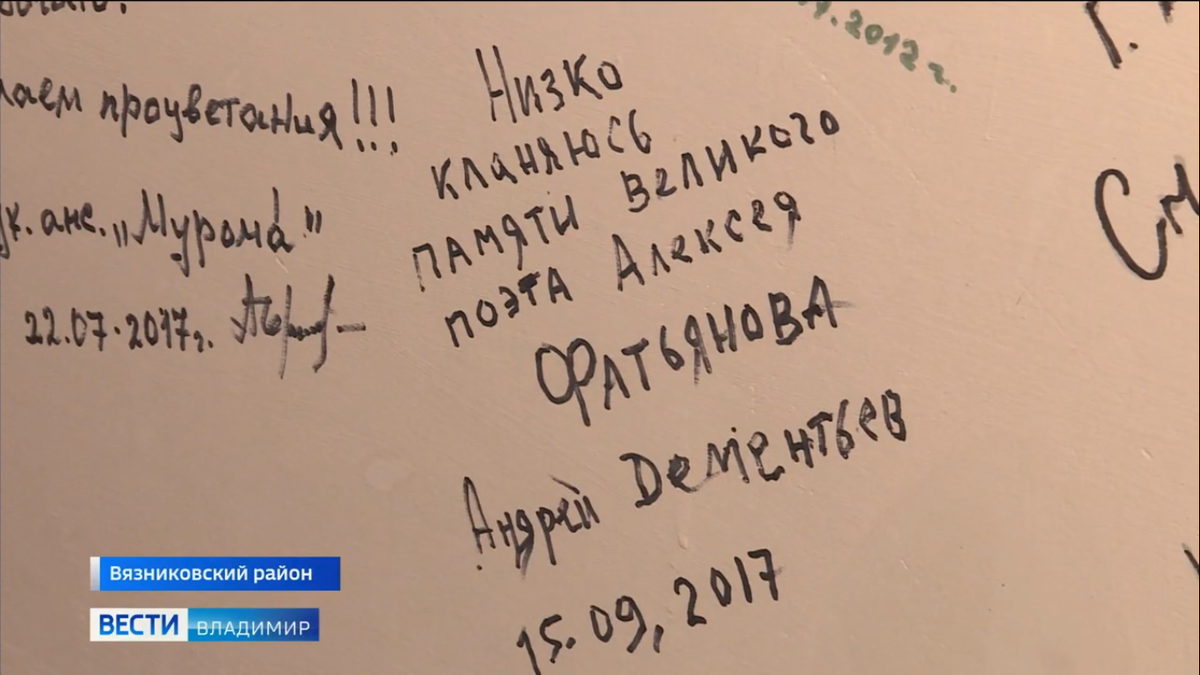 лаем процветания!!!
ук. анс. „Мурома"
22.07.2017г.
Низко
кланяюсь
памяти великого
поэта Алексея
ФАТЬЯНОВА
Андрей Дементьев
15.09, 2017
.2012 г.
г.
Вязниковский район
ВЕСТИ ВЛАДИМИР